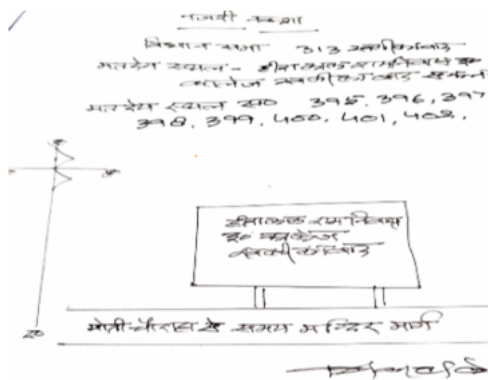 नजरी नक्शा
विधान सभा 313 खलीलाबाद
मतदेय स्थल - हीरालाल रामनिवास इ०
कालेज खलीलाबाद
मतदेय स्थल सं० 395, 396, 397
398, 399, 400, 401, 402,
हीरालाल राम निवास
इ० कालेज
खलीलाबाद
मोती चौराहा से समय मन्दिर मार्ग